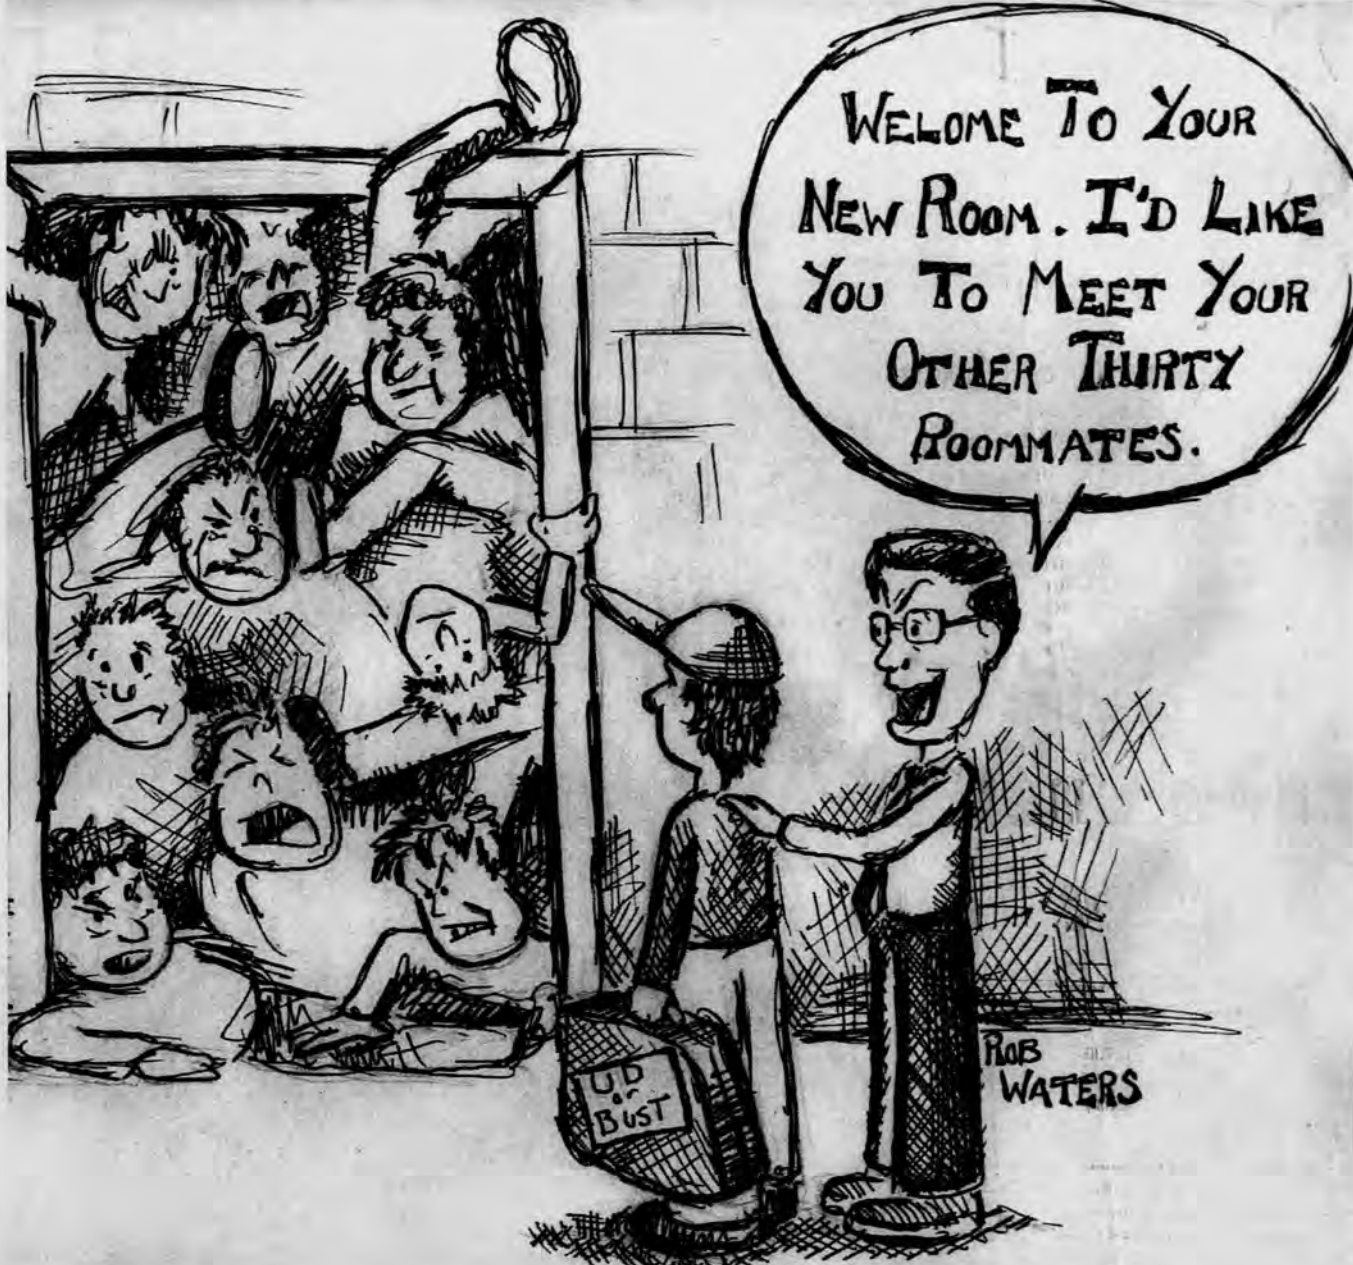 WELOME TO YOUR
NEW ROOM. I'D LIKE
YOU TO MEET YOUR
OTHER THIRTY
ROOMMATES.
UD
or
BUST
ROB
WATERS